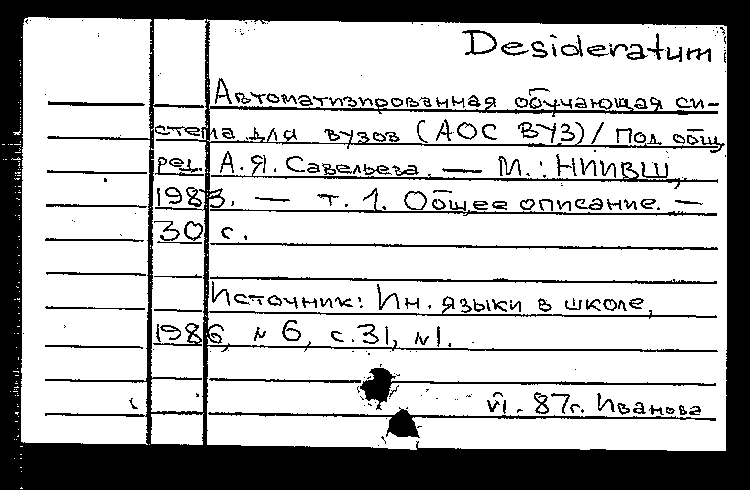 Desideratum
Автоматизированная обучающая си-
стема для вузов (АОС ВУЗ)/ Под общ.
ред. А.Я. Савельева. — М.: НИИВШ,
1983. — т. 1. Общее описание. —
30 с.
Источник: Ин. языки в школе,
1986, № 6, с. 31, №1.
VI. 87г. Иванова